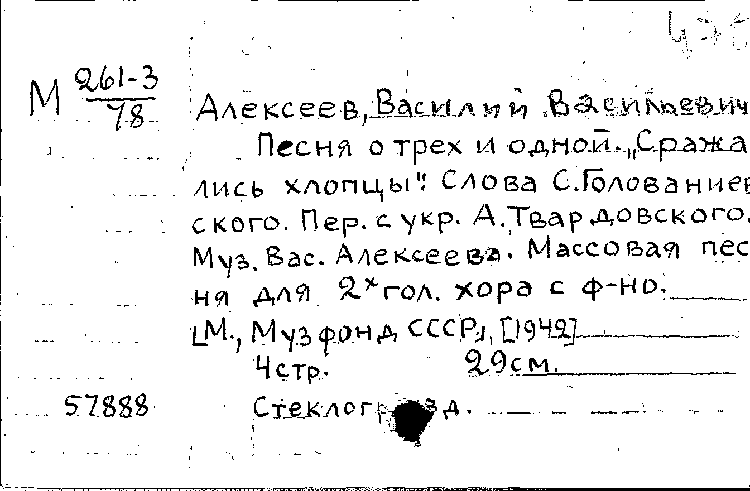 М 261-3
78
Алексеев, Василий Васильевич
Песня о трех и одной. „Сража
лись хлопцы". Слова С. Голованиев
ского. Пер. с укр. А. Твардовского.
Муз. Вас. Алексеева. Массовая пес
ня для 2х гол. хора с ф-но.
[М., Музфонд СССР], [1942]
4стр. 29см.
57888 д.